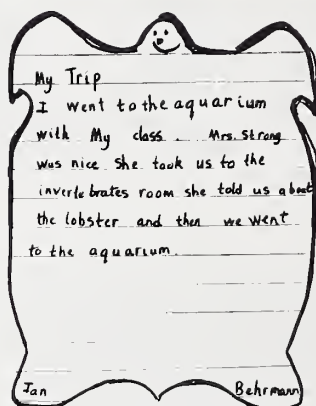 My Trip
I went to the aquarium
with My class. Mrs. Strong
was nice She took us to the
invertebrates room she told us about
the lobster and then we went
to the aquarium.
Ian Behrmann